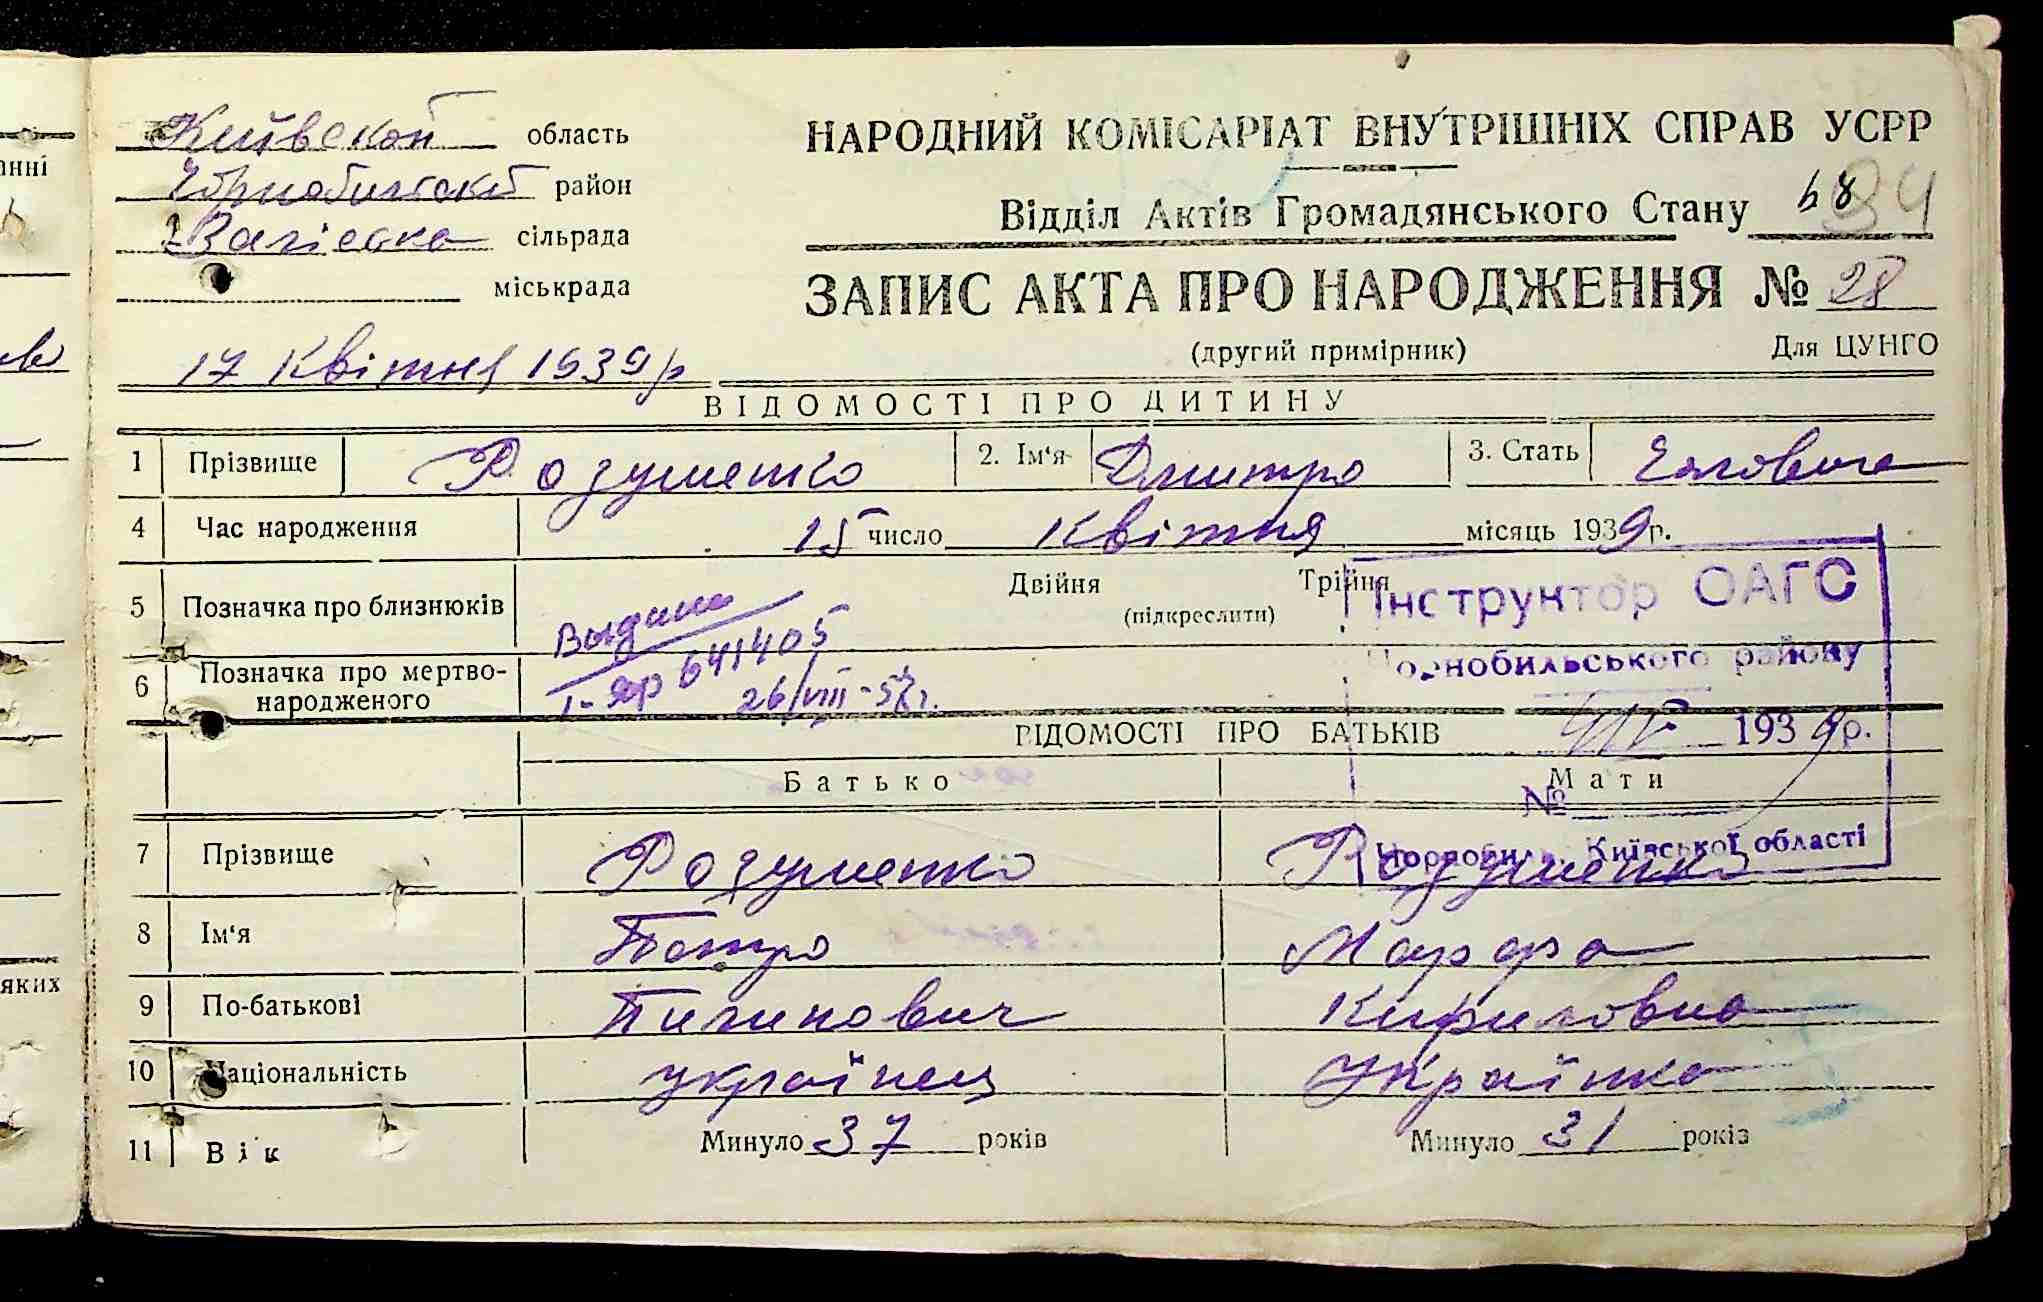 Київской область
Чорнобильский район
Залісська сільрада
міськрада
17 Квітня 1939 р
НАРОДНИЙ КОМІСАРІАТ ВНУТРІШНІХ СПРАВ УСРР
Відділ Актів Громадянського Стану 68 94
ЗАПИС АКТА ПРО НАРОДЖЕННЯ № 28
(другий примірник) Для ЦУНГО
ВІДОМОСТІ ПРО ДИТИНУ
1 Прізвище Розуменко 2. Ім'я Дмитро 3. Стать
4 Час народження 15 число Квітня місяць 1939 р.
5 Позначка про близнюків Двійня Трійня
(підкреслити)
6 Позначка про мертво-
народженого
Выдано
I-ЯР 641405
26/VIII-57г.
Інструктор ОАГС
Чорнобильського району
1939 р.
№
Чорнобиль, Київської області
ВІДОМОСТІ ПРО БАТЬКІВ
Батько Мати
7 Прізвище Розуменко Розуменко
8 Ім'я Петро Марфа
9 По-батькові Пилипович Кириловна
10 Національність українець Українка
11 Вік Минуло 37 років Минуло 31 років
анні
яких